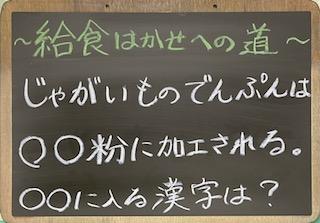 ~給食はかせへの道~
じゃがいものでんぷんは
〇〇粉に加工される。
〇〇に入る漢字は?